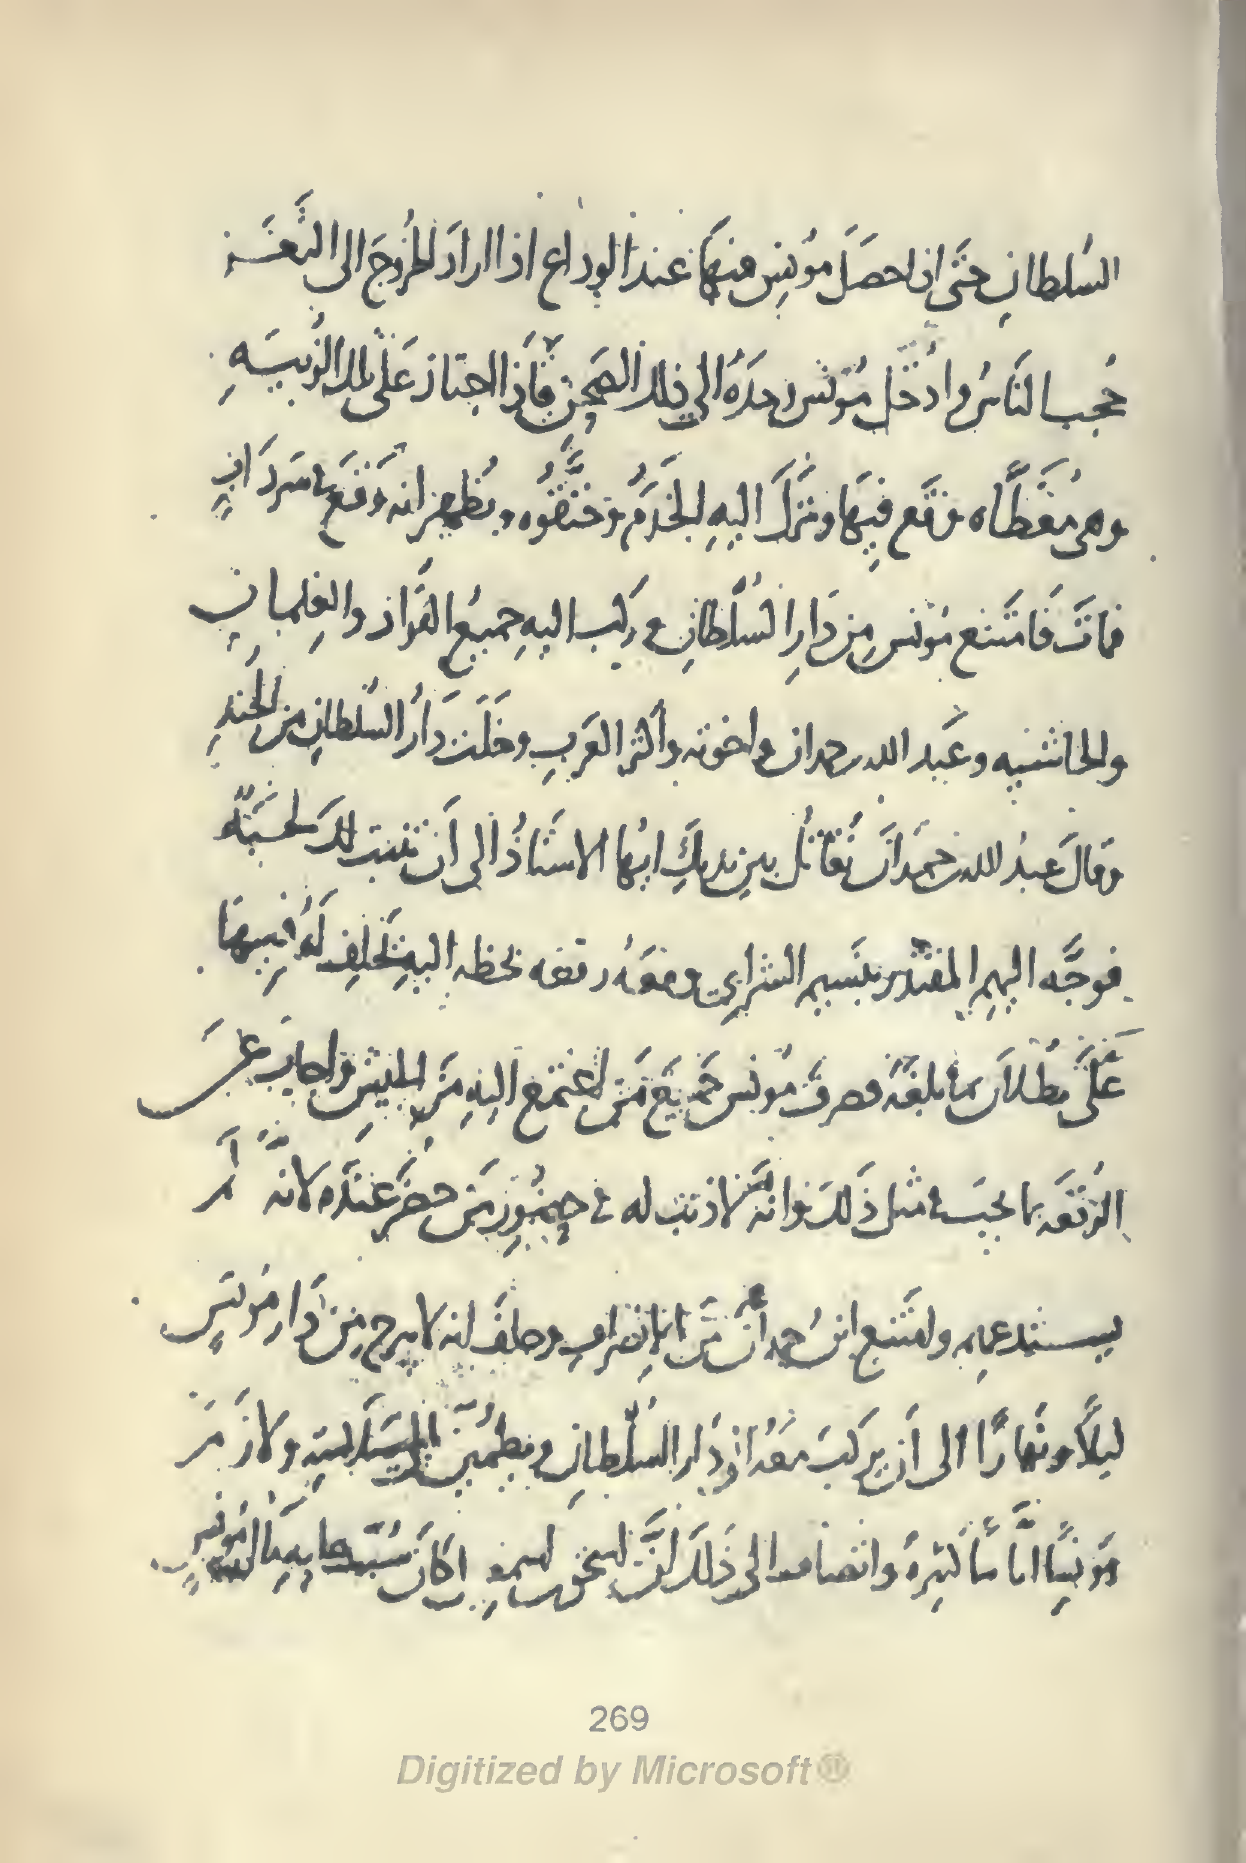 السُلطانِ حتَّى اذا حصَلَ مونِس منهَا عند الوداع اذا ارادَ الخُروجَ الى الثَّغر
حُجب النَاسُ وادُخَل مُونس وحدَهُ الى ذلك الصَحِن فَاذا اجتاز عَلى تلك الزُبيَه
وهى مُغَطَّاه وقَع فيهَا ونَزَلَ اليهِ الخَدَمُ وخنَقُوه ويُظهِر انه وَقَع في سَردَابٍ
فماتَ فَامتَنع مُونس مِن دَارِ السُلطانِ وركب اليهِ جميعُ القُوَّاد والغِلمانِ
والحاشيه وعَبد الله بن حمدان واخوته وأكثر العَربِ وخلَت دَارُ السُلطانِ من الجُندِ
وقالَ عبدُ الله بن حَمدَان نُقَاتُل بين يديكَ ايُها الاستَاذُ الى أن تنبت لك لحيَةٌ
فوجَّه اليهِم المقتدر بنَسِيم الشرابى ومَعَهُ رقعه بخطه اليهِ يحَلِف لَهُ فيهَا
عَلَى بُطلان ما بلغَهُ فصرفَ مونس جَميعَ مَن اجتمَع اليهِ مَن الجيشِ واجابَ عَن
الرُقعَه بما يجبَ في مثل ذَلكَ وانه لا ذنب له في حضُورِ مَن حضَرَ عندَه لانهُ لم
يستدعِهِم وامتَنع ابن حُمدانَ مَن الانصِرافِ وحلفَ انه لا يبرح مِن دَارِ مُونسٍ
ليلاً ونَهارًا الى أن يركبَ مَعَهُ الى دَار السُلطانِ ويطمئِنَّ الى سَلامتِه ولازَمَ
مونسًا ايامًا كثيرهُ وانضاف الى ذَلكَ ان